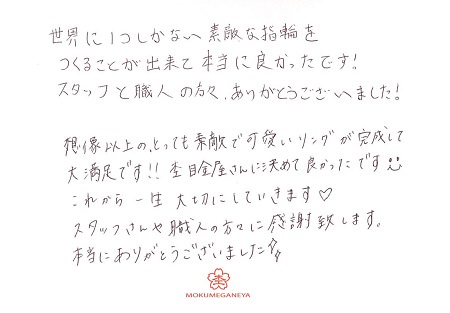 世界に1つしかない素敵な指輪を
つくることが出来て本当に良かったです!
スタッフと職人の方々、ありがとうございました!
想像以上の、とっても素敵で可愛いリングが完成して
大満足です!! 杢目金屋さんに決めて良かったです
これから一生大切にしていきます♡
スタッフさんや職人の方々に感謝致します。
本当にありがとうございました
杢
MOKUMEGANEYA